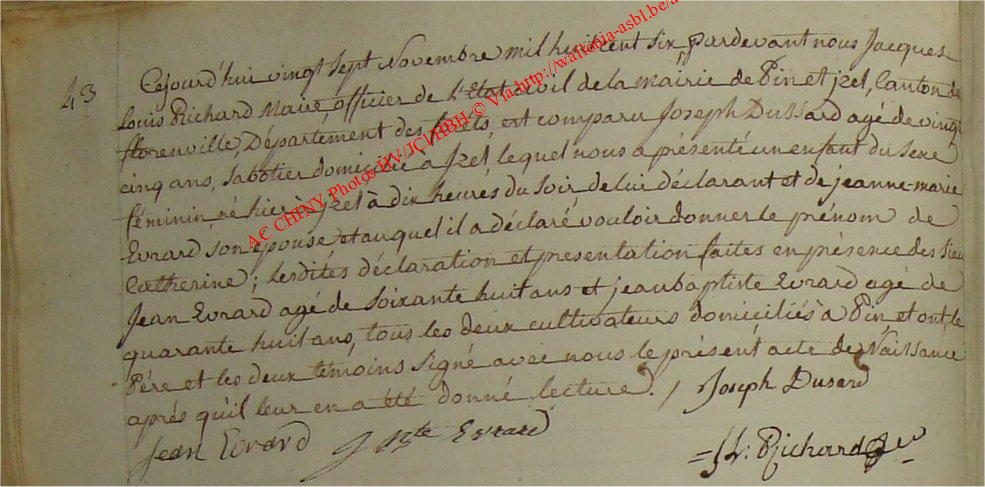 43
Cejourd'hui vingt Sept Novembre mil huit cent six, pardevant nous Jacques
Louis Richard Maire officier de l'Etat civil de la Mairie de Pin et jzel, Canton de
florenville, Département des forêts, est comparu Joseph Dussard agé de vingt
cinq ans, Sabotier domicilié a Jzel, lequel nous a présenté un enfant du Sexe
féminin né hier à jzel à dix heures du Soir, de lui déclarant et de jeanne-marie
Evrard Son épouse et auquel il a déclaré vouloir donner le prénom de
Catherine; lesdites déclaration et presentation faites en présence des
Jean Evrard agé de Soixante huit ans et jean baptiste Evrard agé de
quarante huit ans, tous les deux cultivateurs domiciliés à Pin et ont, le
Pére et les deux témoins Signé avec nous le présent acte de Naissance
aprés qu'il leur en a été donné lecture. /
Joseph Dusard
Jean Evrard J Bte Evrard
Richard
AC CHINY Photos HV/JCI/HBH © Via http://wallonia-asbl.be/a